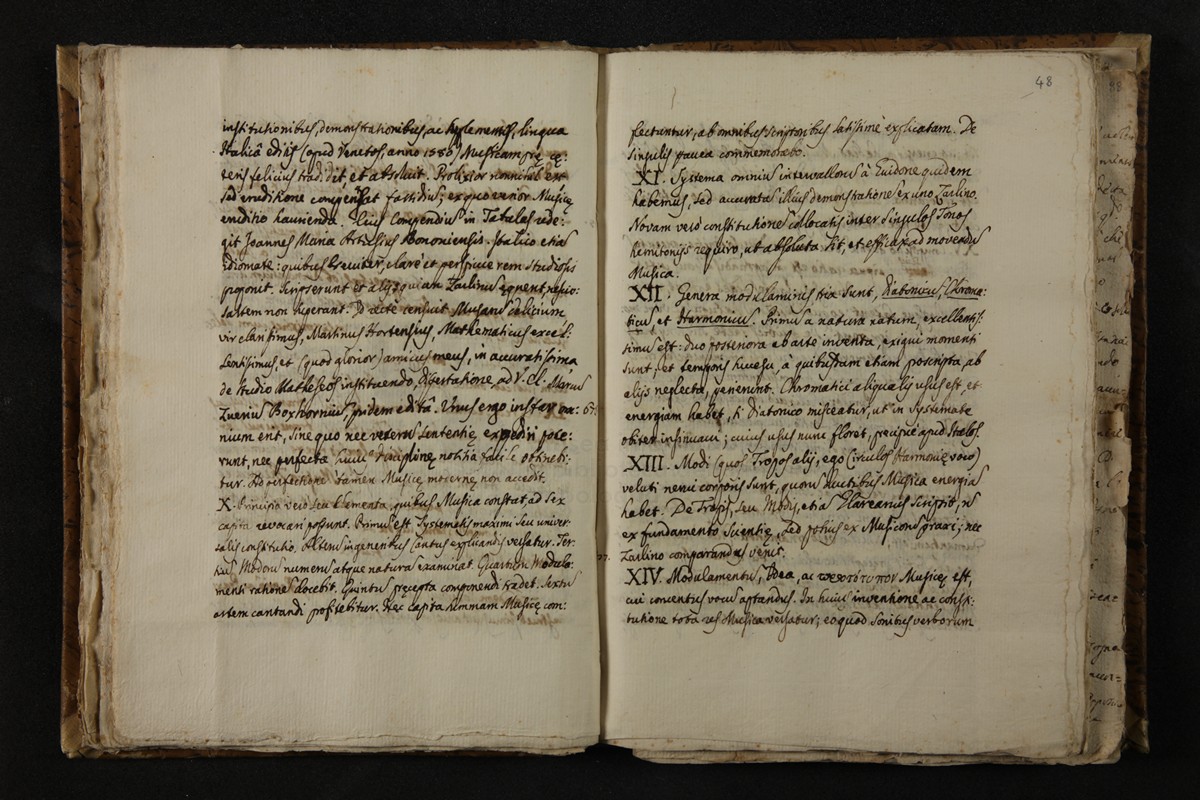 institutionibus, demonstrationibus, ac supplementis, lingua
Italicâ editis (apud Venetos, anno 1580) Musicam prę cę:
teris felicius tradidit, et absolvit. Prolixior nonnihil est
sed eruditione compensat fastidiũ; ex quo verior Musicę
eruditio haurienda. Eius Compendiũ in Tabulas rede:
git Joannes Maria Artusius Bononiensis. Italico etiã
idiomate: quibus breviter, clarè et perspicue rem studiosis
proponit. Scripserunt et alij, qui iam Zarlinũ ęquent, ratio:
saltem non superant. Id rectè censuit Musarũ delicium
vir clarissimus, Martinus Hortensius, Mathematicus excel:
lentissimus, et (quod glorior) amicus meus, in accuratissima
de studio Matheseos instituendo, dissertatione, ad V. Cl. Marcũ
Zueriũ Boxhorniũ, pridem editâ. Unus ergo instar om:
nium erit, sine quo nec veterũ sententię expediri pote:
runt, nec perfecta huius disciplinę notitia facile obtinebi:
tur. Ad perfectionẽ tamen Musicę modernę non accedit.
X. Principia verò seu Elementa, quibus Musica constat ad sex
capita revocari possunt. Primũ est Systematis maximi seu univer:
salis constitutio. Alterũ in generibus cantus explicandis versatur. Ter:
tiũ Modorũ numerũ atque naturã examinat. Quartum Modula:
menti rationẽ docebit. Quintũ pręcepta componendi tradet. Sextũ
artem cantandi profitebitur. Hęc capita summam Musicę com:
67.
48
flectuntur, ab omnibus scriptoribus satissimè explicatam. De
singulis pauca commemorabo.
XI. Systema omniũ intervallorũ à Guidone quidem
habemus, sed accuratã illius demonstrationẽ ex uno Zarlino.
Novam verò constitutionẽ collocatis inter singulos Tonos
hemitonijs requiro, ut absoluta sit, et efficax ad movendũ
Musica.
XII. Genera modulaminis tria sunt, Diatonicũ, Chroma:
ticũ, et Harmoniũ. Primũ a natura natum, excellentis:
simũ est: duo posteriora ab arte inventa, exigui momenti
sunt, et temporis successu, à quibusdam etiam postrita, ab
alijs neglecta, perierunt. Chromatici aliqualis usus est, et
energiam habet, si Diatonico misceatur, ut in Systemate
obiter insinuavi; cuius usus nunc floret, pręcipuè apud Italos.
XIII. Modi (quos Tropos alij, ego Circulos Harmonię voco)
veluti nervi corporis sunt, quorũ ductibus Musica energiã
habet. De Tropis, seu Modis, etiã Glareanus scripsit, nõ
ex fundamento scientię, sed potius ex Musicorũ praxi; nec
Zarlino comparandus venit.
XIV. Modulamentũ, Idea, ac πρωτότυπον Musicę est,
cui concentus vocũ aptandus. In huius inventione ac consti:
tutione tota res Musica versatur; eo quod sonibus verborum
77.